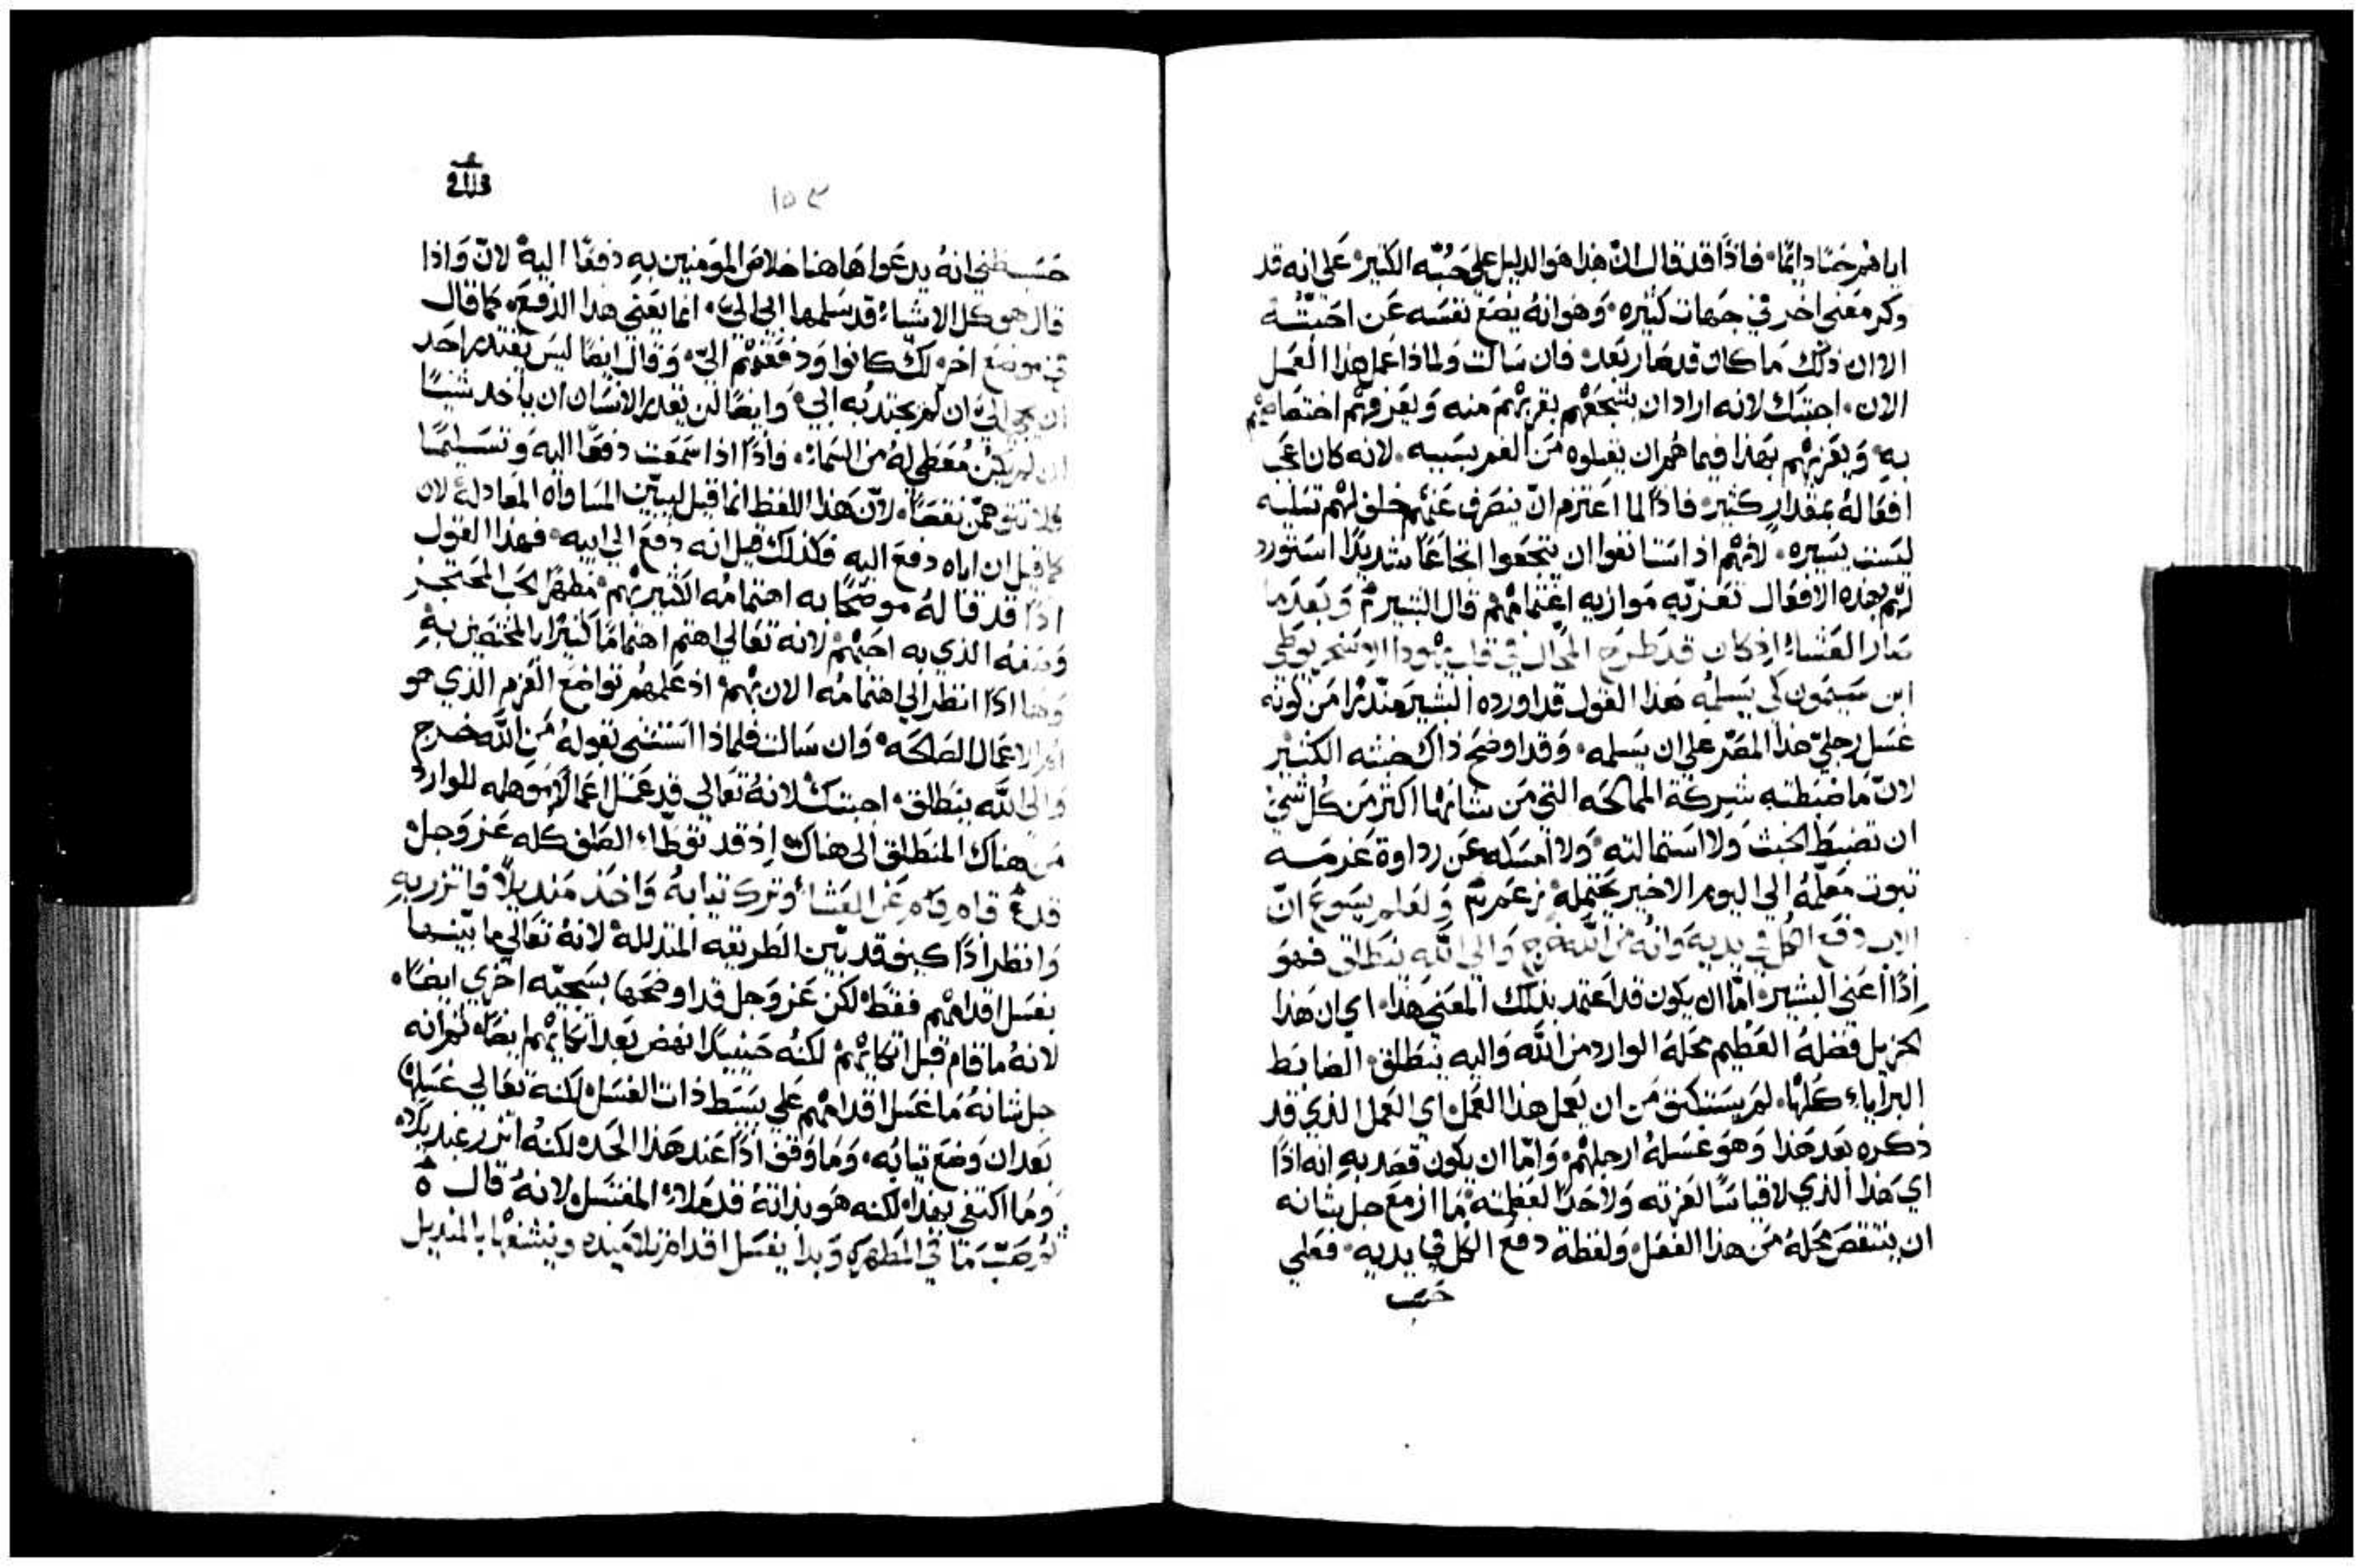 اياهم حبًا دايمًا، فاذًا قد قال انّ هذا هو الدليل علي حبّه الكثير، علي انه قد
ذكر معني اخر في جهات كثيره، وهو انه يضع نفسه عن احبّته
الا ان ذلك ما كان قد صار بعد، فان سالت ولماذا عمل هذا العمل
الان، اجبتك لانه اراد ان يشجعهم بقربهم منه ويعرفهم اختصاصهم
به، ويعزيهم بهذا فيما هم ان يقبلوه من الغم بسببه، لانه كان عجب
افعاله بمقدار كثير، فاذًا لما اعتزم انّ ينصرف عنهم خلف لهم تسليه
ليست يسيره، لانهم اذ استانفوا ان يتجعوا اتجاعًا شديدًا استورد
لهم بهذه الافعال تعزيه موازيه اغتمامهم قال البشير وبعد ما
صار العشاء اذ كان قد طرح المحال في قلب يهودا الاسخريوطي
ابن سيمون كي يسلمه هذا القول قد اورده البشير منذرًا من كونه
غسل رجليّ هذا المصّر علي ان يسلمه، وقد اوضح ذاك خبثه الكثير
لانّ ما ضبطته شركة الممالحه التي من شانها اكثر من كل شي
ان تضبط الخبث ولا استمالته، ولا امسكه عن رداوة عزمه
ثبوت معلمه الي اليوم الاخير يحتمله وَلعلم يسوع انّ
الاب دفع الكل في يديه وانه من الله خرج والي الله ينطلق فهو
اذًا اعني البشير، امّا ان يكون قد اعتمد بذلك المعني هذا، اي ان هذا
الجزيل فضله العظيم محله الوارد من الله واليه ينطلق، الضابط
البرايا كلها، لم يستنكف من ان يعمل هذا العمل، اي العمل الذي قد
ذكره بعد هذا وهو غسله ارجلهم، وامّا ان يكون قصد به انه اذًا
اي هذا الذي لا قياسًا لعزته ولا حدًا لعظمته، ما ازمع جل شانه
ان ينتقص محله من هذا الفعل، ولفظة دفع الكل في يديه، فعلي
حسب
١٥٣
حسب ظني انه يدعوا هاهنا خلاص المومنين به دفعًا اليه، لانّ واذا
قال هو كل الاشياء قد سلمها ابي اليّ، انما يعني هذا الدفع، كما قال
في موضع اخر، لك كانوا ودفعتهم اليّ، وقال ايضًا ليس يقتدر احد
ان يجي اليّ ان لم يجتذبه ابي، وايضًا لن يقدر الانسان ان ياخذ شيئًا
ان لم يكن معطي له من السماء، فاذًا اذا سمعت دفعًا اليه وتسليمًا
فلا تتوهمّن نقصًا، لانّ هذا اللفظ انما قيل ليبيّن المساواه المعادله، لان
كما قيل ان اباه دفع اليه فكذلك قيل انه دفع الي ابيه، فهذا القول
اذًا قد قاله موضحًا به اهتمامه الكثير بهم، مظهرًا الحب المحتجز
وصفه الذي به احبهم، لانه تعالي اهتم اهتمامًا كثيرًا بالمختصين به
وهنا اذًا انظر الي اهتمامه الان بهم، اذ علمهم تواضع العزم الذي هو
ام الاعمال الصالحه، وان سالت فلماذا استثني بقوله من الله خرج
والي الله ينطلق، اجبتك لانه تعالي قد عمل اعمالًا موهله للوارد
من هناك المنطلق الي هناك اذ قد توطا الصلف كله عز وجل
قام عن العشاء وترك ثيابه واخذ منديلًا فاتزر به
وانظر اذًا كيف قد بيّن الطريقه المتذلله، لانه تعالي ما بيّنها
بغسل اقدامهم فقط، لكن عز وجل قد اوضحها بسجيّه اخري ايضًا،
لانه ما قام قبل اتكايهم، لكنه حينيذًا نهض بعد اتكايهم ايضًا، ثم انه
جل شانه ما غسل اقدامهم علي بسيط ذات الغسل، لكنه تعالي غسلها
بعد ان وضع ثيابه، وما وقف اذًا عند هذا الحد، لكنه اتزر
وما اكتفي بهذا، لكنه هو بذاته قد ملا المغتسل، لانه قال
ثم صبّ ما في المطهره وبدا يغسل اقدام تلاميذه وينشفها بالمنديل